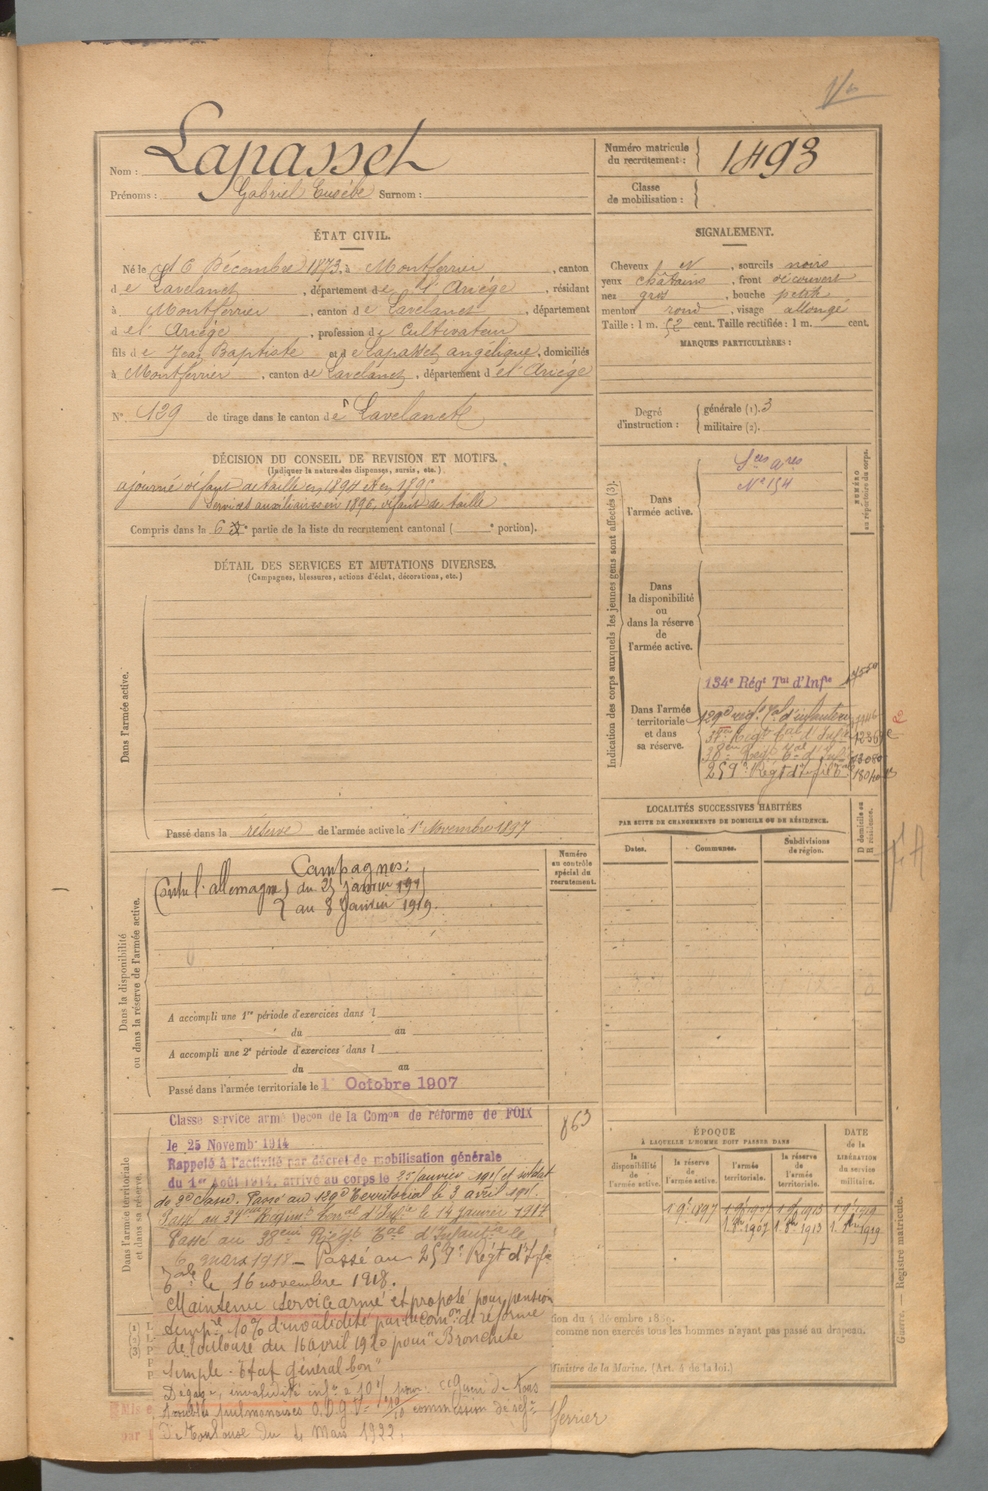 Nom : Lapasset
Prénoms : Gabriel Eusèbe Surnom :
Numéro matricule du recrutement : 1493
Classe de mobilisation :
ÉTAT CIVIL.
Né le 16 Décembre 1873, à Montferrier, canton
de Lavelanet, département de l'Ariége, résidant
à Montferrier, canton de Lavelanet, département
d el' Ariége, profession de Cultivateur
fils de Jean Baptiste et de Lapasset angélique, domiciliés
à Montferrier, canton de Lavelanet, département d el' Ariége
N° 129 de tirage dans le canton de Lavelanet
SIGNALEMENT.
Cheveux N, sourcils noirs
yeux châtains, front découvert
nez gros, bouche petite
menton rond, visage allongé
Taille : 1 m. 52 cent. Taille rectifiée : 1 m. cent.
MARQUES PARTICULIÈRES :
Degré d'instruction : générale (1). 3
militaire (2).
DÉCISION DU CONSEIL DE REVISION ET MOTIFS.
(Indiquer la nature des dispenses, sursis, etc.)
ajourné défaut de taille en 1894 et en 1895
Services auxiliaires en 1896, défaut de taille
Compris dans la 6e partie de la liste du recrutement cantonal ( e portion).
DÉTAIL DES SERVICES ET MUTATIONS DIVERSES.
(Campagnes, blessures, actions d'éclat, décorations, etc.)
Dans l'armée active.
Passé dans la réserve de l'armée active le 1er Novembre 1897
Indication des corps auxquels les jeunes gens sont affectés (3).
NUMÉRO au répertoire du corps.
Dans l'armée active.
Sces aires
N° 154
Dans la disponibilité ou dans la réserve de l'armée active.
Dans l'armée territoriale et dans sa réserve.
134e Régt Tal d'Infie
129e régt Tal d'infanterie
37ème Régt Tal d'Infie
38ème Régt Tal d'Infie
259e Regt d'Infie Tale
LOCALITÉS SUCCESSIVES HABITÉES
PAR SUITE DE CHANGEMENTS DE DOMICILE OU DE RÉSIDENCE.
Dates. Communes. Subdivisions de région. D domicile ou R résidence.
Dans la disponibilité ou dans la réserve de l'armée active.
Numéro au contrôle spécial du recrutement.
Campagnes :
Contre l'allemagne du 25 janvier 1915
au 8 Janvier 1919.
A accompli une 1re période d'exercices dans l
du au
A accompli une 2e période d'exercices dans l
du au
Passé dans l'armée territoriale le 1er Octobre 1907
863
Dans l'armée territoriale et dans sa réserve.
Classé service armé Decon de la Comon de réforme de FOIX
le 25 Novembre 1914
Rappelé à l'activité par décret de mobilisation générale
du 1er Août 1914, arrivé au corps le 25 Janvier 1915 et soldat
de 2e classe. Passé au 129e Territorial le 3 avril 1915.
Passé au 37ème Regimt Tal d'Infie le 14 Janvier 1917
Passé au 38ème Régt Tal d'Infantie le
6 mars 1918 – Passé au 259e Régt d'Infie
Tale le 16 novembre 1918.
Maintenu service armé et proposé pour pension
tempre 10% d'invalidité par la Comon de réforme
de Toulouse du 16 avril 1920 pour "Bronchite
simple. Etat général bon"
Dégagé, invalidité infre à 10% pour
troubles pulmonaires commission de réfme
de Toulouse du 4 Mars 1922.
ÉPOQUE
À LAQUELLE L'HOMME DOIT PASSER DANS
DATE de la LIBÉRATION du service militaire.
la disponibilité de l'armée active. la réserve de l'armée active. l'armée territoriale. la réserve de l'armée territoriale.
1 9bre 1897 1 9bre 1907 1 9bre 1913 1 9bre 1919
1. 8bre 1907 1. 8bre 1913 1. 8bre 1919
comme non exercés tous les hommes n'ayant pas passé au drapeau.
Ministre de la Marine. (Art. 4 de la loi.)
Guerre. — Registre matricule.